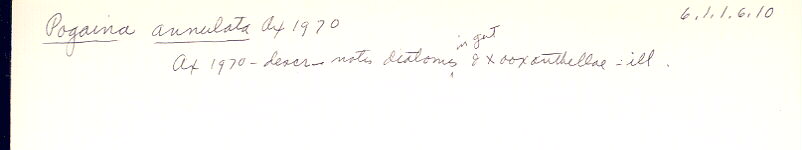 Pogaina annulata Ax 1970 6.1.1.6.10
in gut
Ax 1970 - descr - notes diatoms ‸ & zooxanthellae - ill.